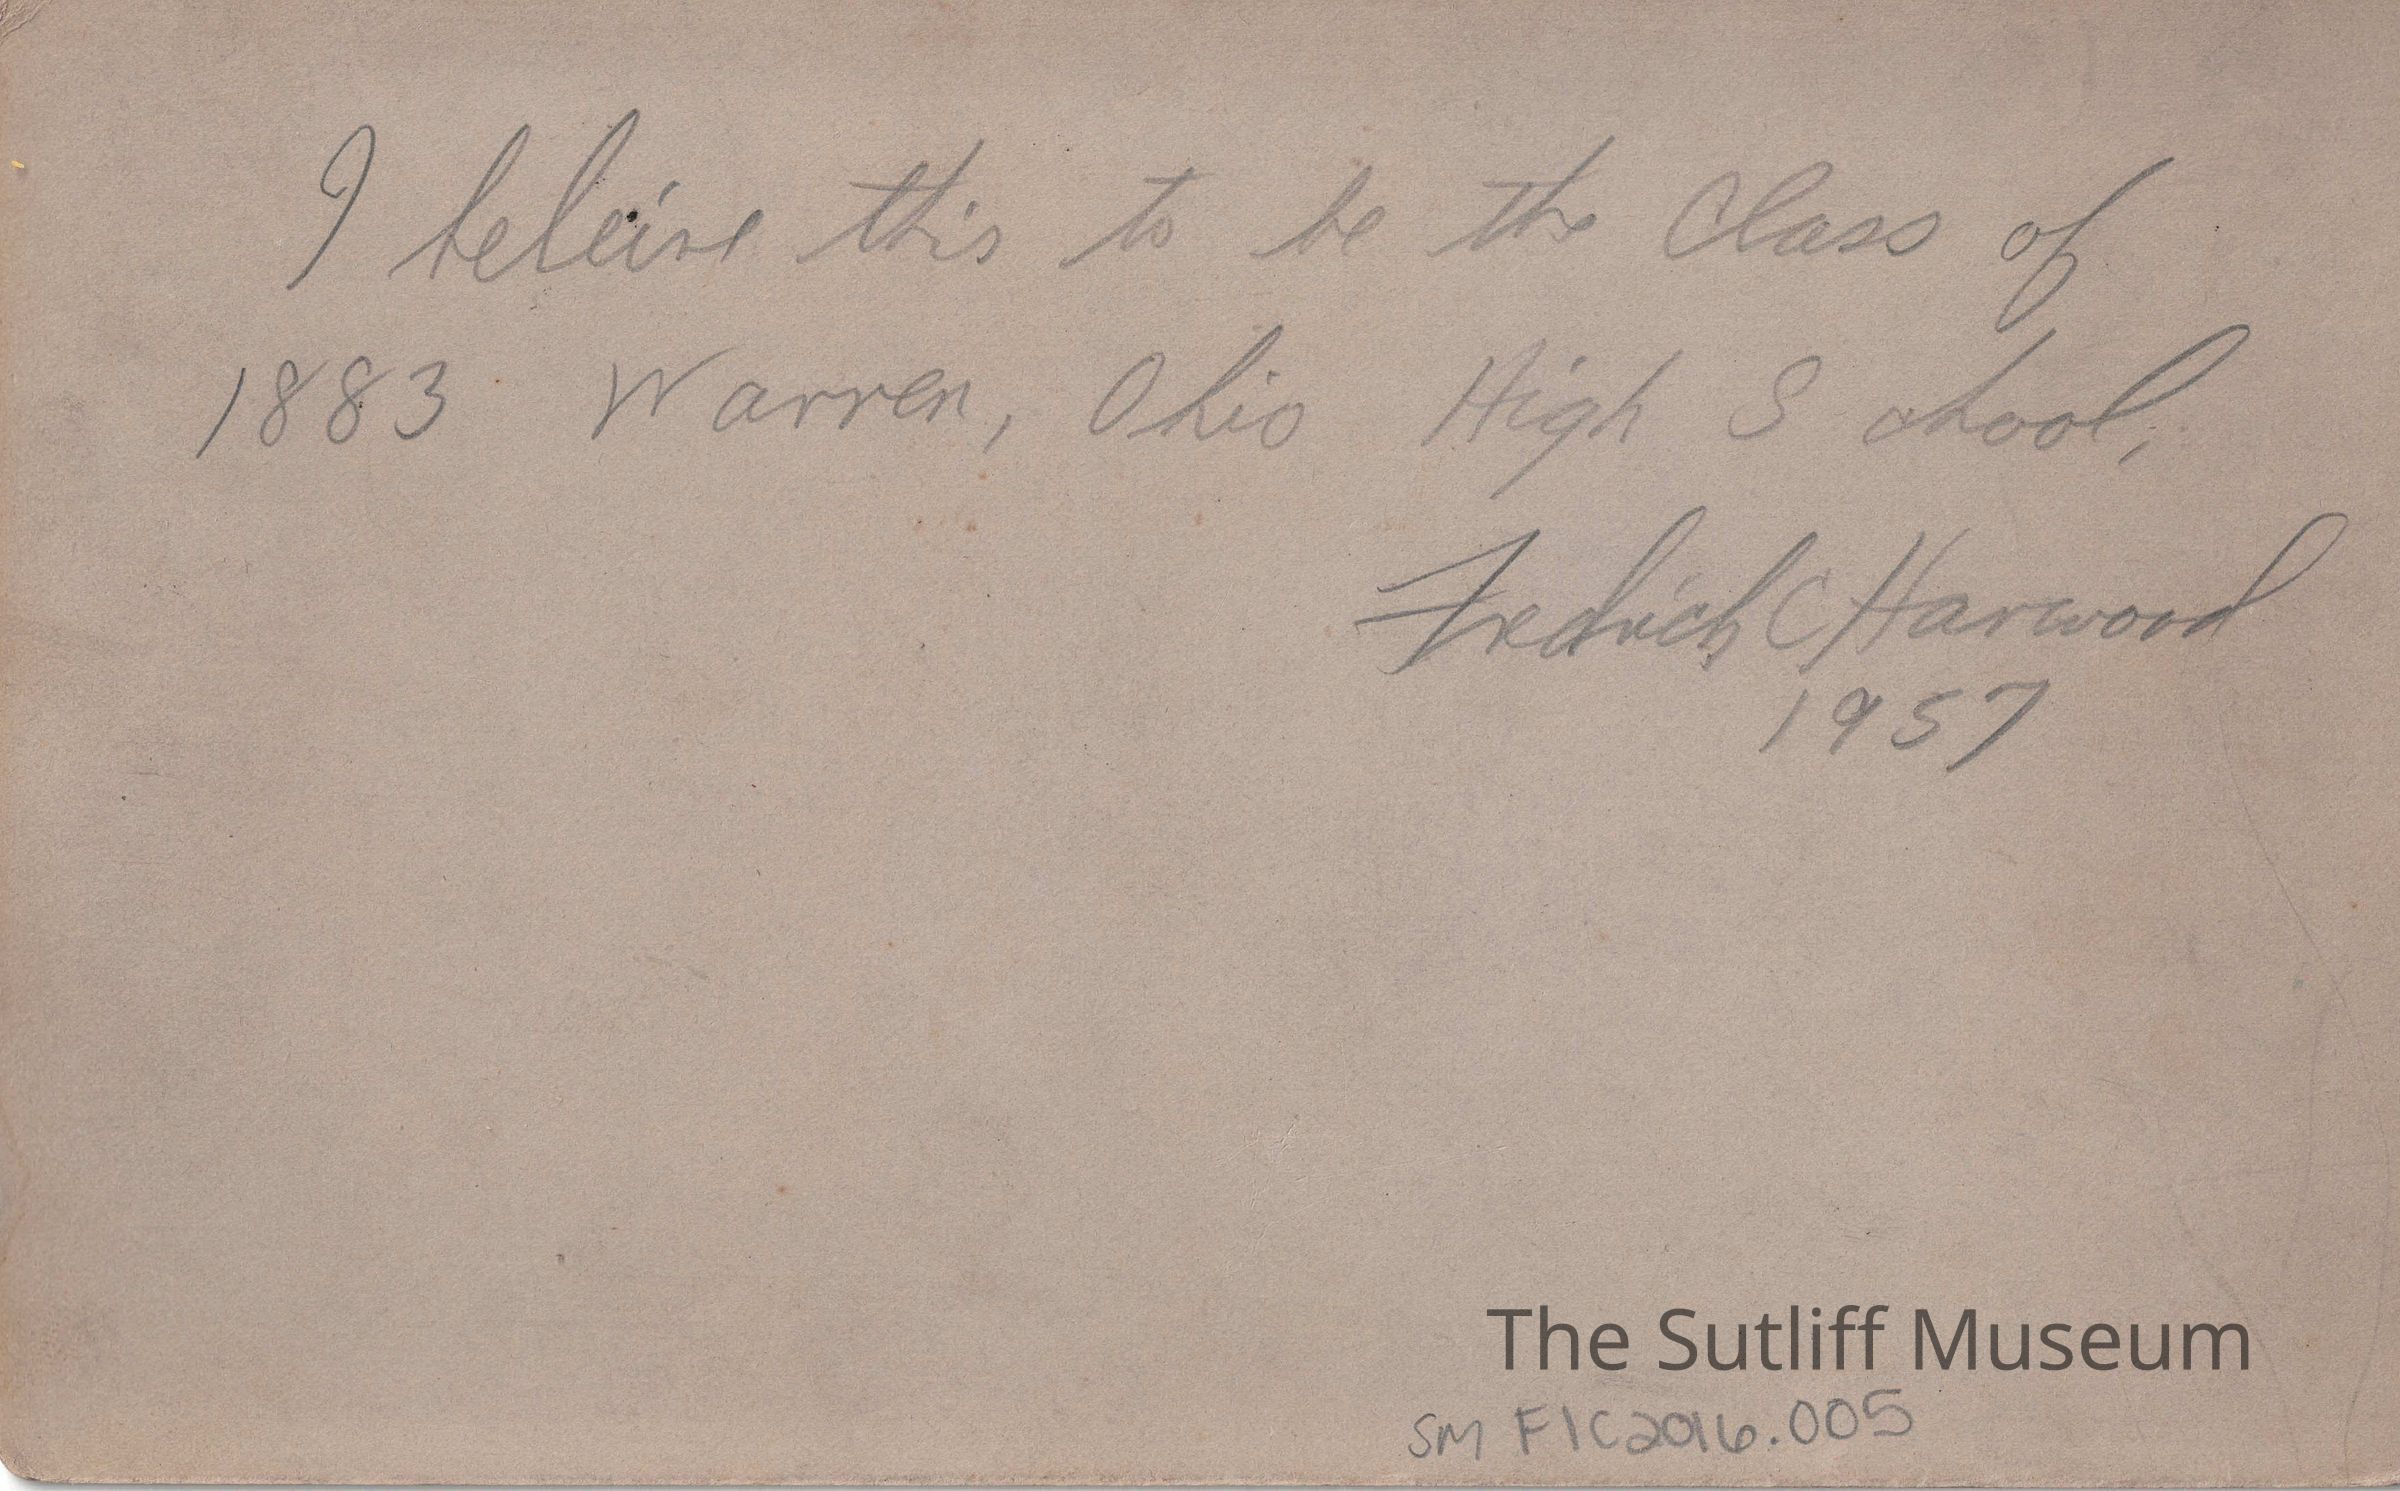 I beleive this to be the Class of
1883 Warren, Ohio High School,
Fredrich C Harwood
1957
The Sutliff Museum
SM FIC2016.005